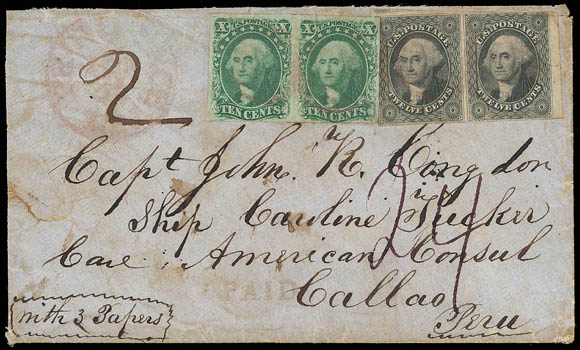 X U.S. POSTAGE X
TEN CENTS
X U.S. POSTAGE X
TEN CENTS
U.S. POSTAGE
TWELVE CENTS
U.S. POSTAGE
TWELVE CENTS
2
Capt John. R. Congdon
Ship Caroline Tucker
Care: American Consul
24
Callao
PAID
Peru
with 3 Papers